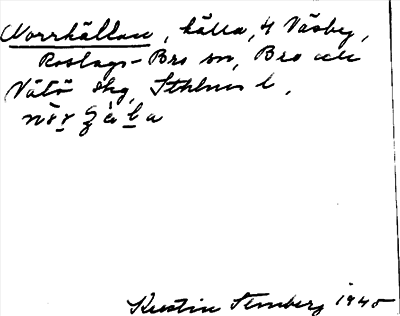 Norrkällan, källa, 4 Väsby,
Roslags-Bro sn, Bro och
Vätö skg, Sthlms l.
Kerstin Stenberg 1945